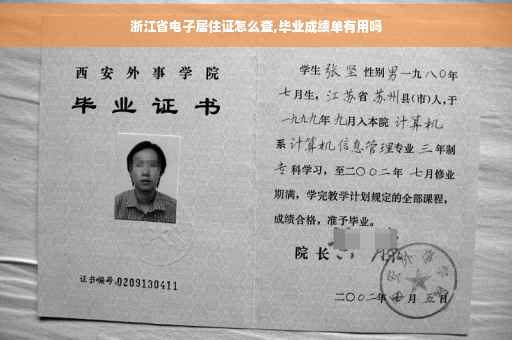 浙江省电子居住证怎么查,毕业成绩单有用吗
西安外事学院
毕业证书
证书编号:0209130411
学生 张坚 性别 男 一九八〇年
七月生, 江苏省 苏州县(市)人,于
一九九九年 九月入本院 计算机
系 计算机信息管理专业 三年制
专科学习,至二〇〇二年 七月修业
期满,学完教学计划规定的全部课程,
成绩合格,准予毕业。
院长
二〇〇二年 月 五日